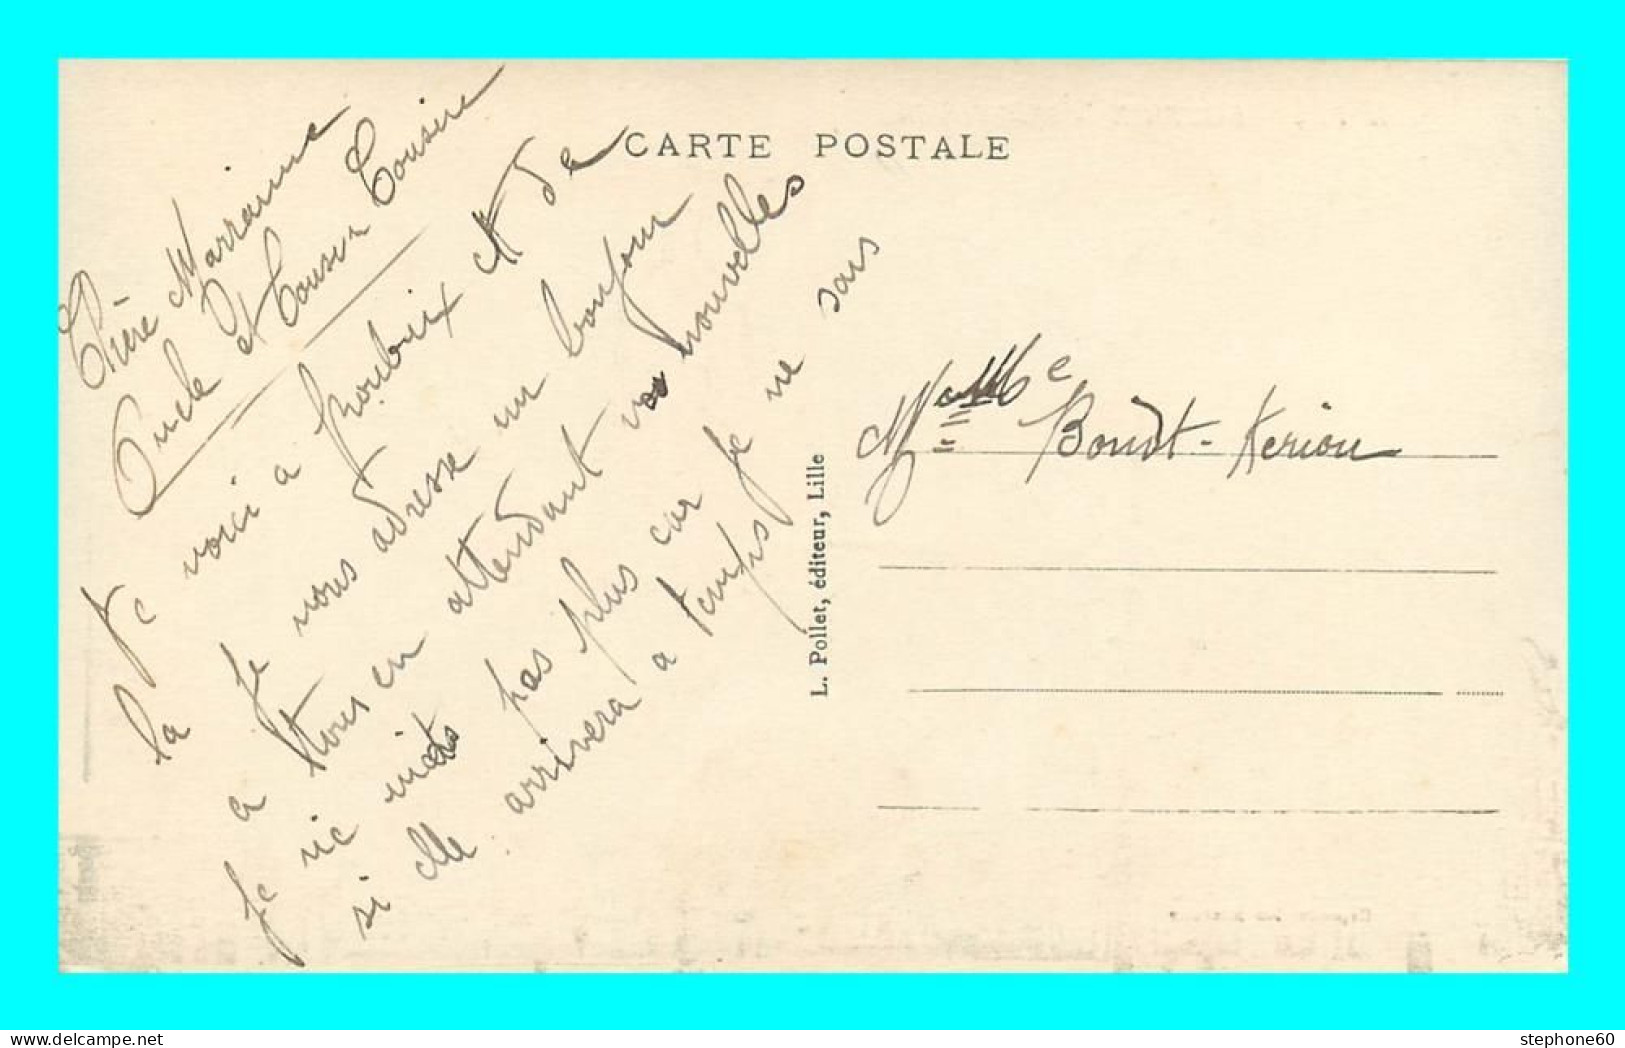 CARTE POSTALE
Chère Marraine
Oncle et Cousin Cousine
Me voici a Roubaix et de
la je vous adresse un bonjour
a tous en attendant vos nouvelles
Je ne mets pas plus car je ne sais
si elle arrivera a temps
L. Pollet, éditeur, Lille
Mme
Boudt-Keriou
stephone60